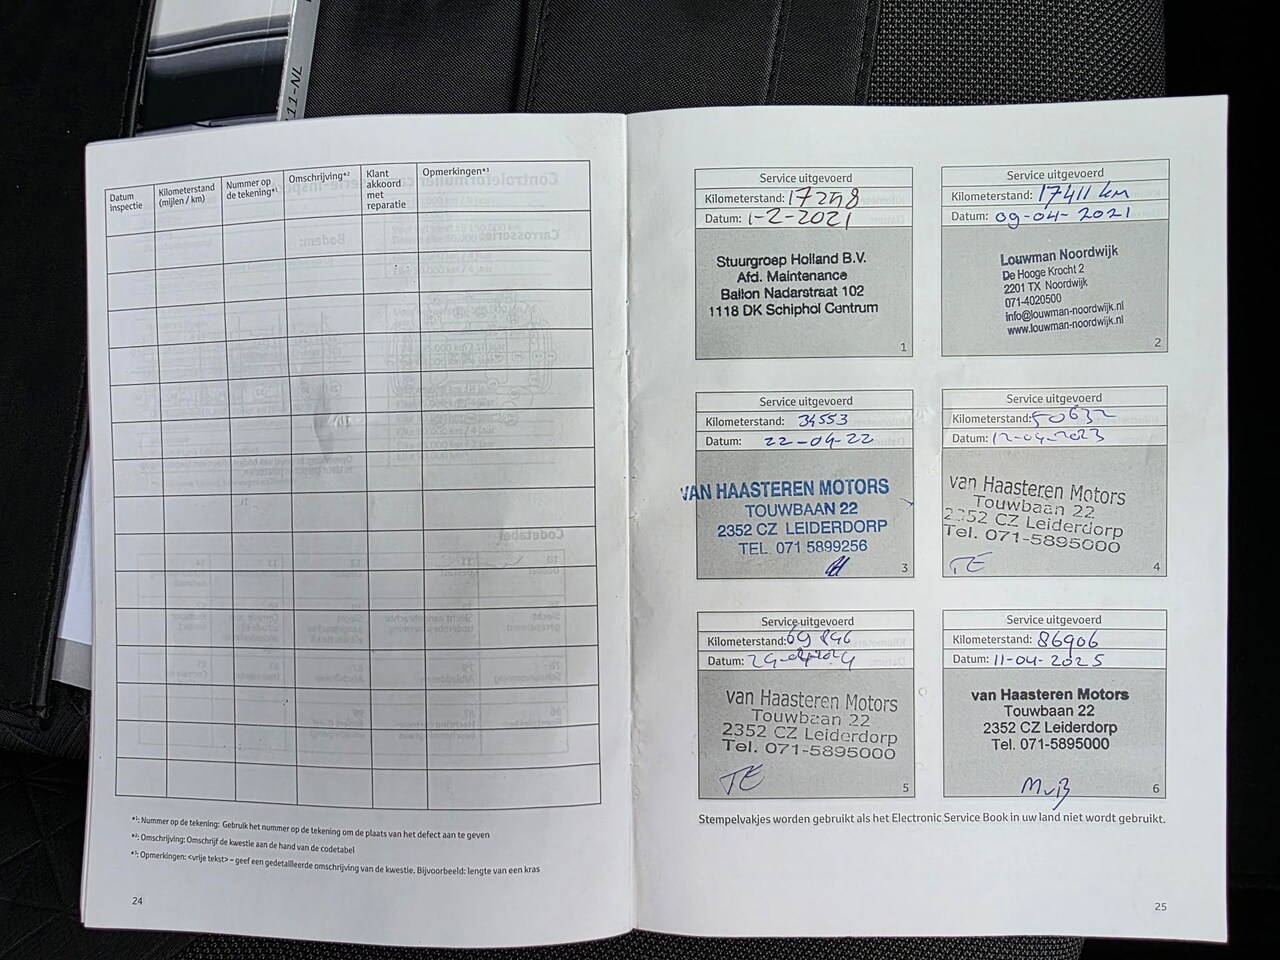 11-NL
Datum inspectie
Kilometerstand (mijlen / km)
Nummer op de tekening*1
Omschrijving*2
Klant akkoord met reparatie
Opmerkingen*3
*1: Nummer op de tekening: Gebruik het nummer op de tekening om de plaats van het defect aan te geven
*2: Omschrijving: Omschrijf de kwestie aan de hand van de codetabel
*3: Opmerkingen: <vrije tekst> – geef een gedetailleerde omschrijving van de kwestie. Bijvoorbeeld: lengte van een kras
24
Service uitgevoerd
Kilometerstand: 17258
Datum: 1-2-2021
Stuurgroep Holland B.V.
Afd. Maintenance
Ballon Nadarstraat 102
1118 DK Schiphol Centrum
1
Service uitgevoerd
Kilometerstand: 17411 km
Datum: 09-04-2021
Louwman Noordwijk
De Hooge Krocht 2
2201 TX Noordwijk
071-4020500
info@louwman-noordwijk.nl
www.louwman-noordwijk.nl
2
Service uitgevoerd
Kilometerstand: 34553
Datum: 22-04-22
VAN HAASTEREN MOTORS
TOUWBAAN 22
2352 CZ LEIDERDORP
TEL. 071 5899256
3
Service uitgevoerd
Kilometerstand: 50632
Datum: 12-04-2023
van Haasteren Motors
Touwbaan 22
2352 CZ Leiderdorp
Tel. 071-5895000
TE
4
Service uitgevoerd
Kilometerstand: 69846
Datum:
van Haasteren Motors
Touwbaan 22
2352 CZ Leiderdorp
Tel. 071-5895000
TE
5
Service uitgevoerd
Kilometerstand: 86906
Datum: 11-04-2025
van Haasteren Motors
Touwbaan 22
2352 CZ Leiderdorp
Tel. 071-5895000
MvB
6
Stempelvakjes worden gebruikt als het Electronic Service Book in uw land niet wordt gebruikt.
25